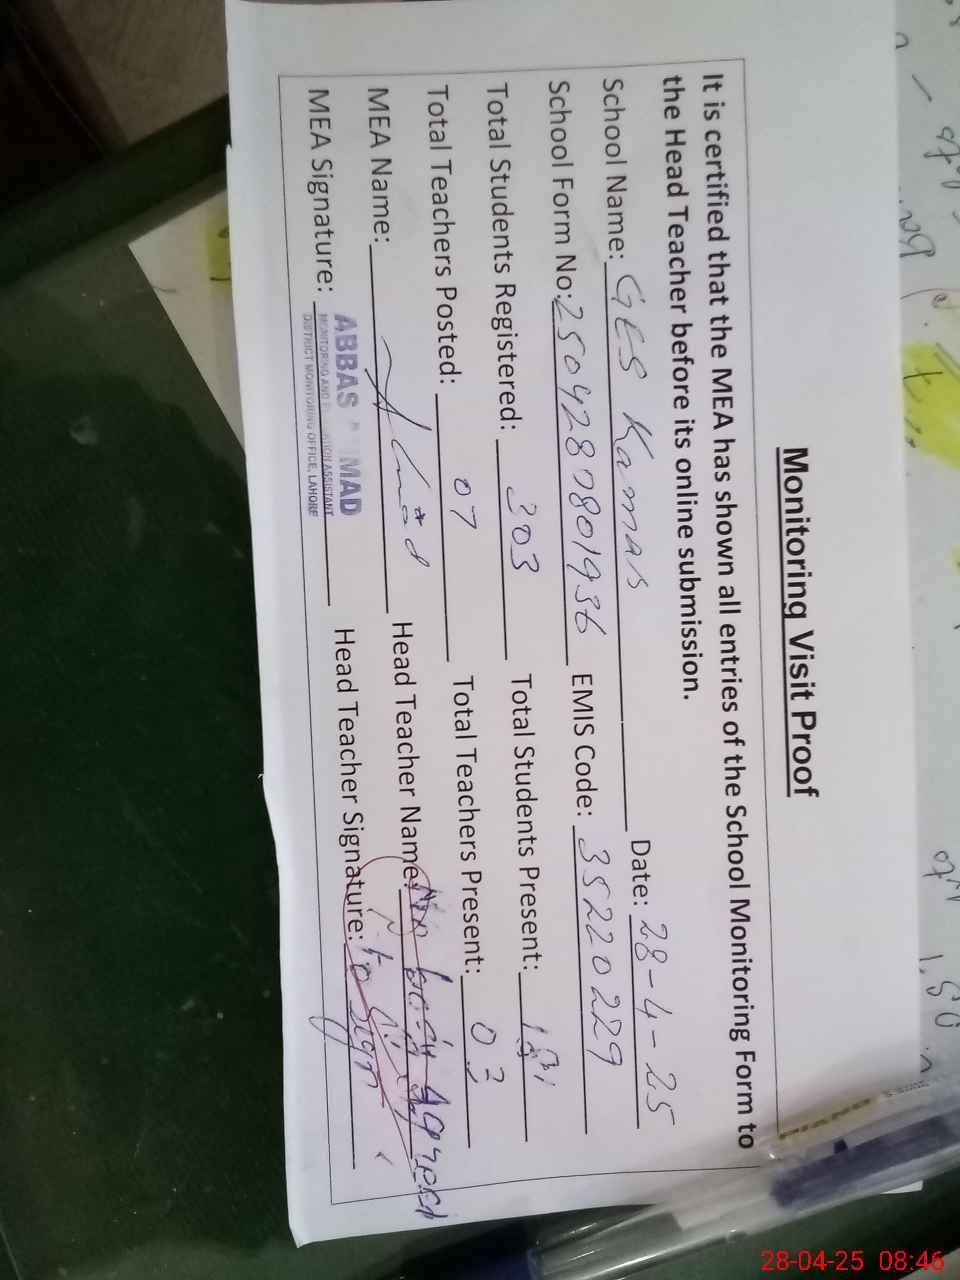 Monitoring Visit Proof
It is certified that the MEA has shown all entries of the School Monitoring Form to
the Head Teacher before its online submission.
School Name: GES Kamas Date: 28-4-25
School Form No: 2504280801936 EMIS Code: 35220229
Total Students Registered: 303 Total Students Present:
Total Teachers Posted: 07 Total Teachers Present: 03
MEA Name: Head Teacher Name: No body agreed
MEA Signature: Head Teacher Signature: to sign
ABBAS MAD
MONITORING AND ASSISTANT
DISTRICT MONITORING OFFICE, LAHORE
PIANO
28-04-25 08:46